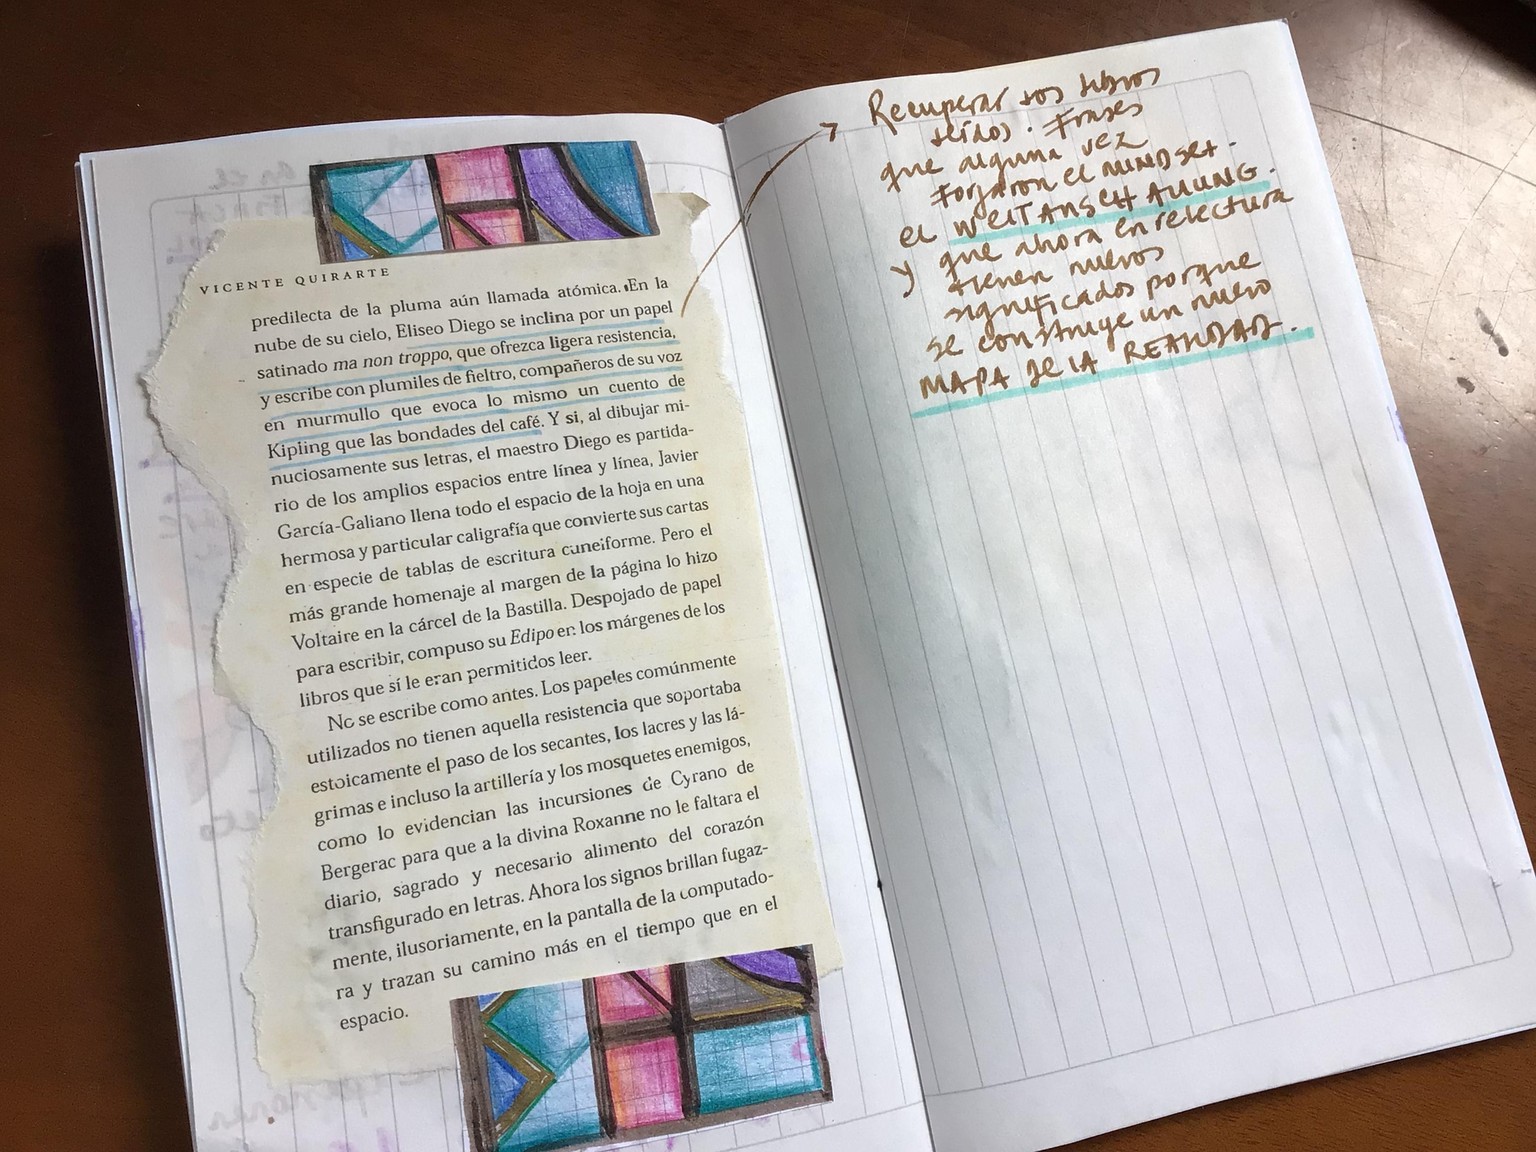 VICENTE QUIRARTE
predilecta de la pluma aún llamada atómica. En la
nube de su cielo, Eliseo Diego se inclina por un papel
satinado ma non troppo, que ofrezca ligera resistencia,
y escribe con plumiles de fieltro, compañeros de su voz
en murmullo que evoca lo mismo un cuento de
Kipling que las bondades del café. Y si, al dibujar mi-
nuciosamente sus letras, el maestro Diego es partida-
rio de los amplios espacios entre línea y línea, Javier
García-Galiano llena todo el espacio de la hoja en una
hermosa y particular caligrafía que convierte sus cartas
en especie de tablas de escritura cuneiforme. Pero el
más grande homenaje al margen de la página lo hizo
Voltaire en la cárcel de la Bastilla. Despojado de papel
para escribir, compuso su Edipo en los márgenes de los
libros que sí le eran permitidos leer.
No se escribe como antes. Los papeles comúnmente
utilizados no tienen aquella resistencia que soportaba
estoicamente el paso de los secantes, los lacres y las lá-
grimas e incluso la artillería y los mosquetes enemigos,
como lo evidencian las incursiones de Cyrano de
Bergerac para que a la divina Roxanne no le faltara el
diario, sagrado y necesario alimento del corazón
transfigurado en letras. Ahora los signos brillan fugaz-
mente, ilusoriamente, en la pantalla de la computado-
ra y trazan su camino más en el tiempo que en el
espacio.
Recuperar los libros
leídos. Frases
que alguna vez
forjaron el MINDSET.
el WELTANSCHAUUNG.
y que ahora en relectura
tienen nuevos
significados porque
se construye un nuevo
MAPA DE LA REALIDAD.